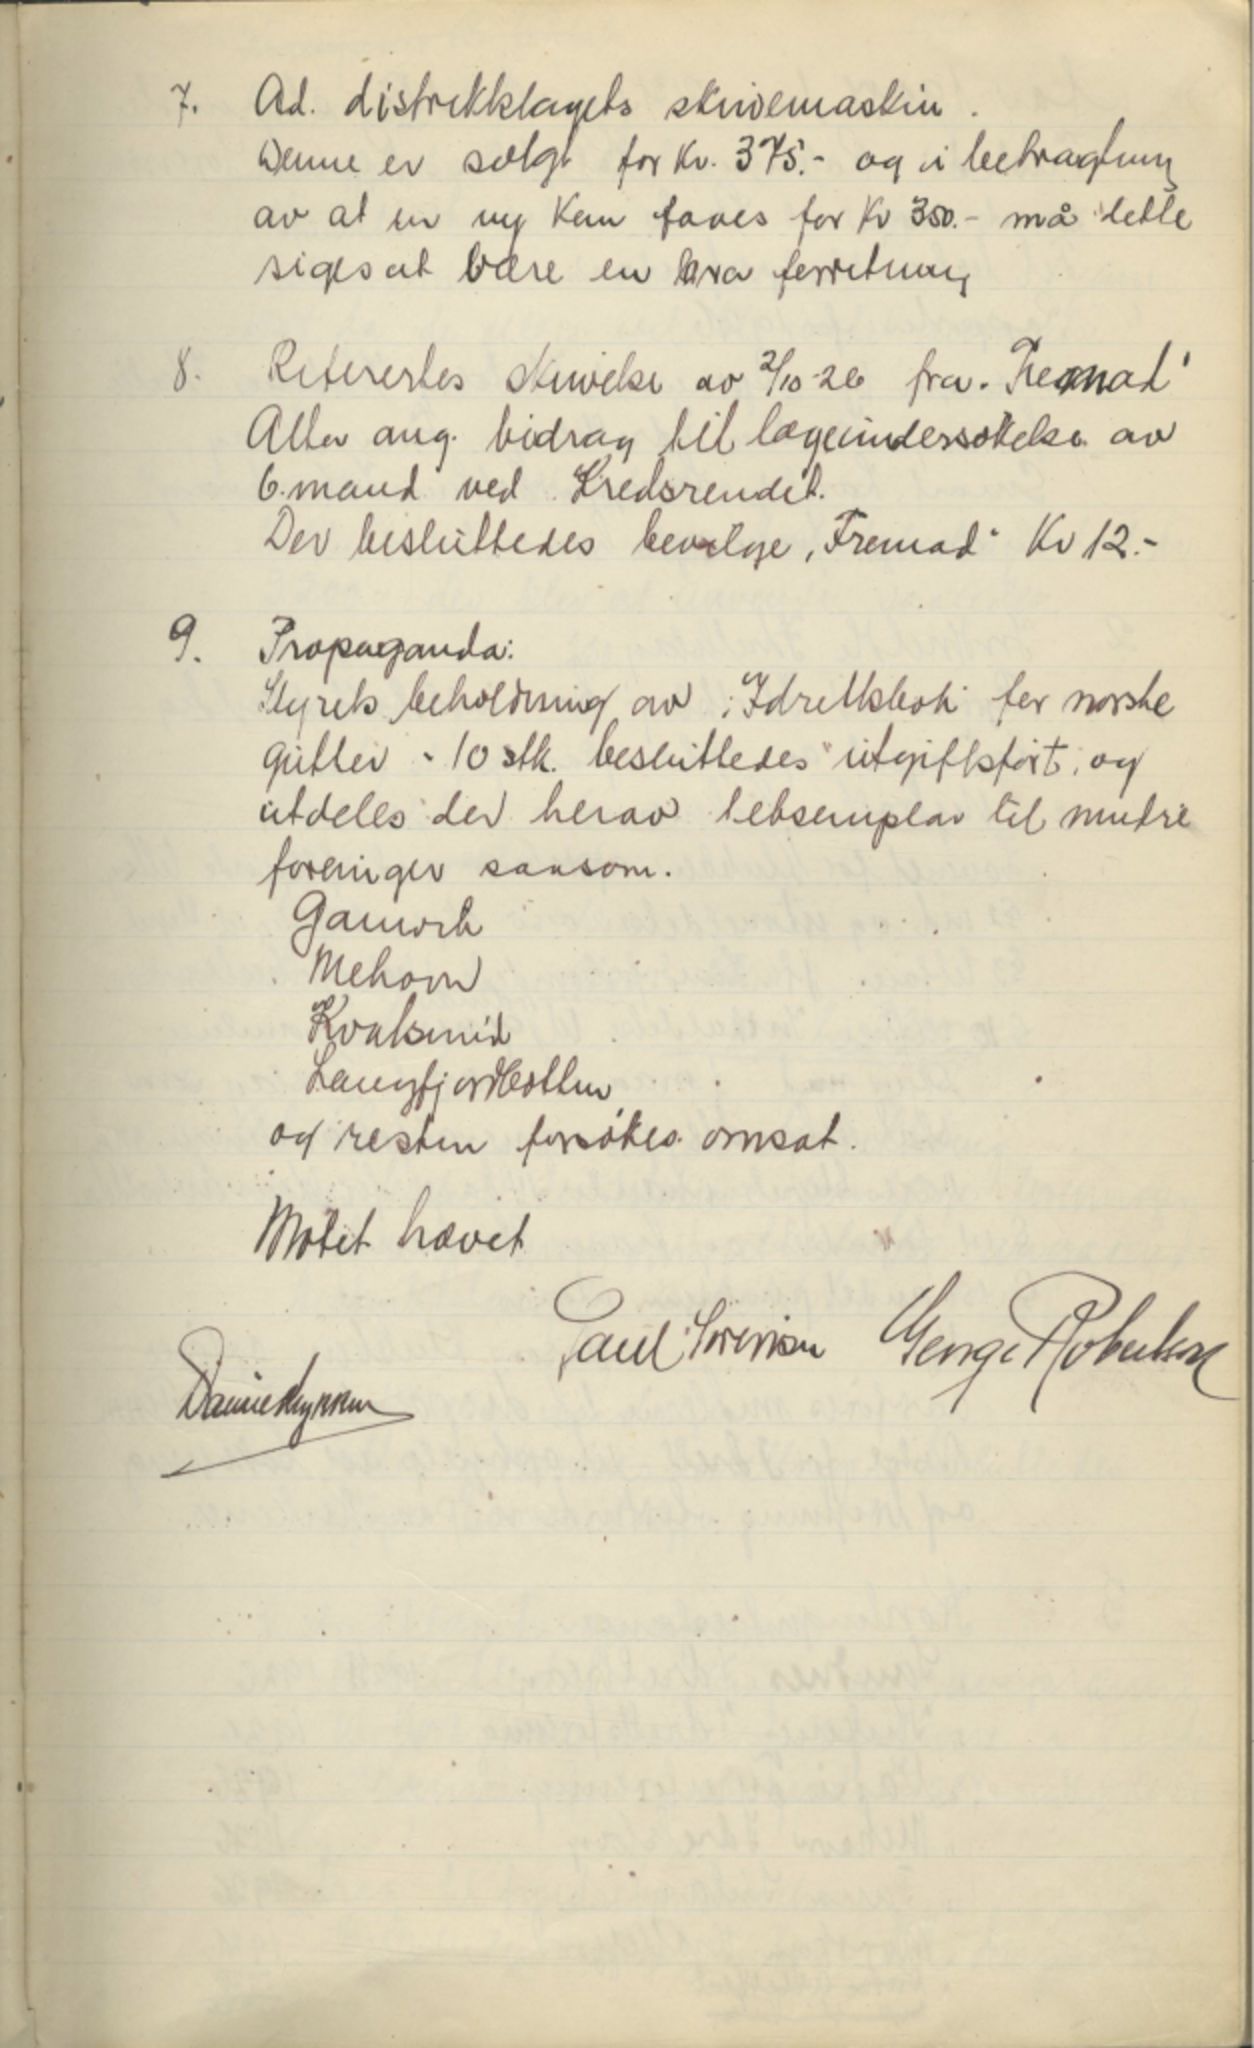 7. Ad. distriktslagets skrivemaskin.
Denne er solgt for Kr. 375.- og i betragtning
av at en ny kan faaes for Kr 350.- må dette
siges at være en bra forretning
8. Referertes skrivelse av 2/10-26 fra "Fremad"
Alta ang. bidrag til lægeundersøkelse av
6 mand ved Kredsrendet.
Der besluttedes bevilge "Fremad" Kr 12.-
9. Propaganda:
Styrets beholdning av "Idrettsbok for norske
gutter" 10 stk. besluttedes utgiftsført, og
utdeles der herav 1 eksemplar til mindre
foreninger saasom.
Gamvik
Mehavn
Kvalsund
Langfjordbotten
og resten forsøkes omsat.
Møtet hævet
Paul Sørensen George Robertson